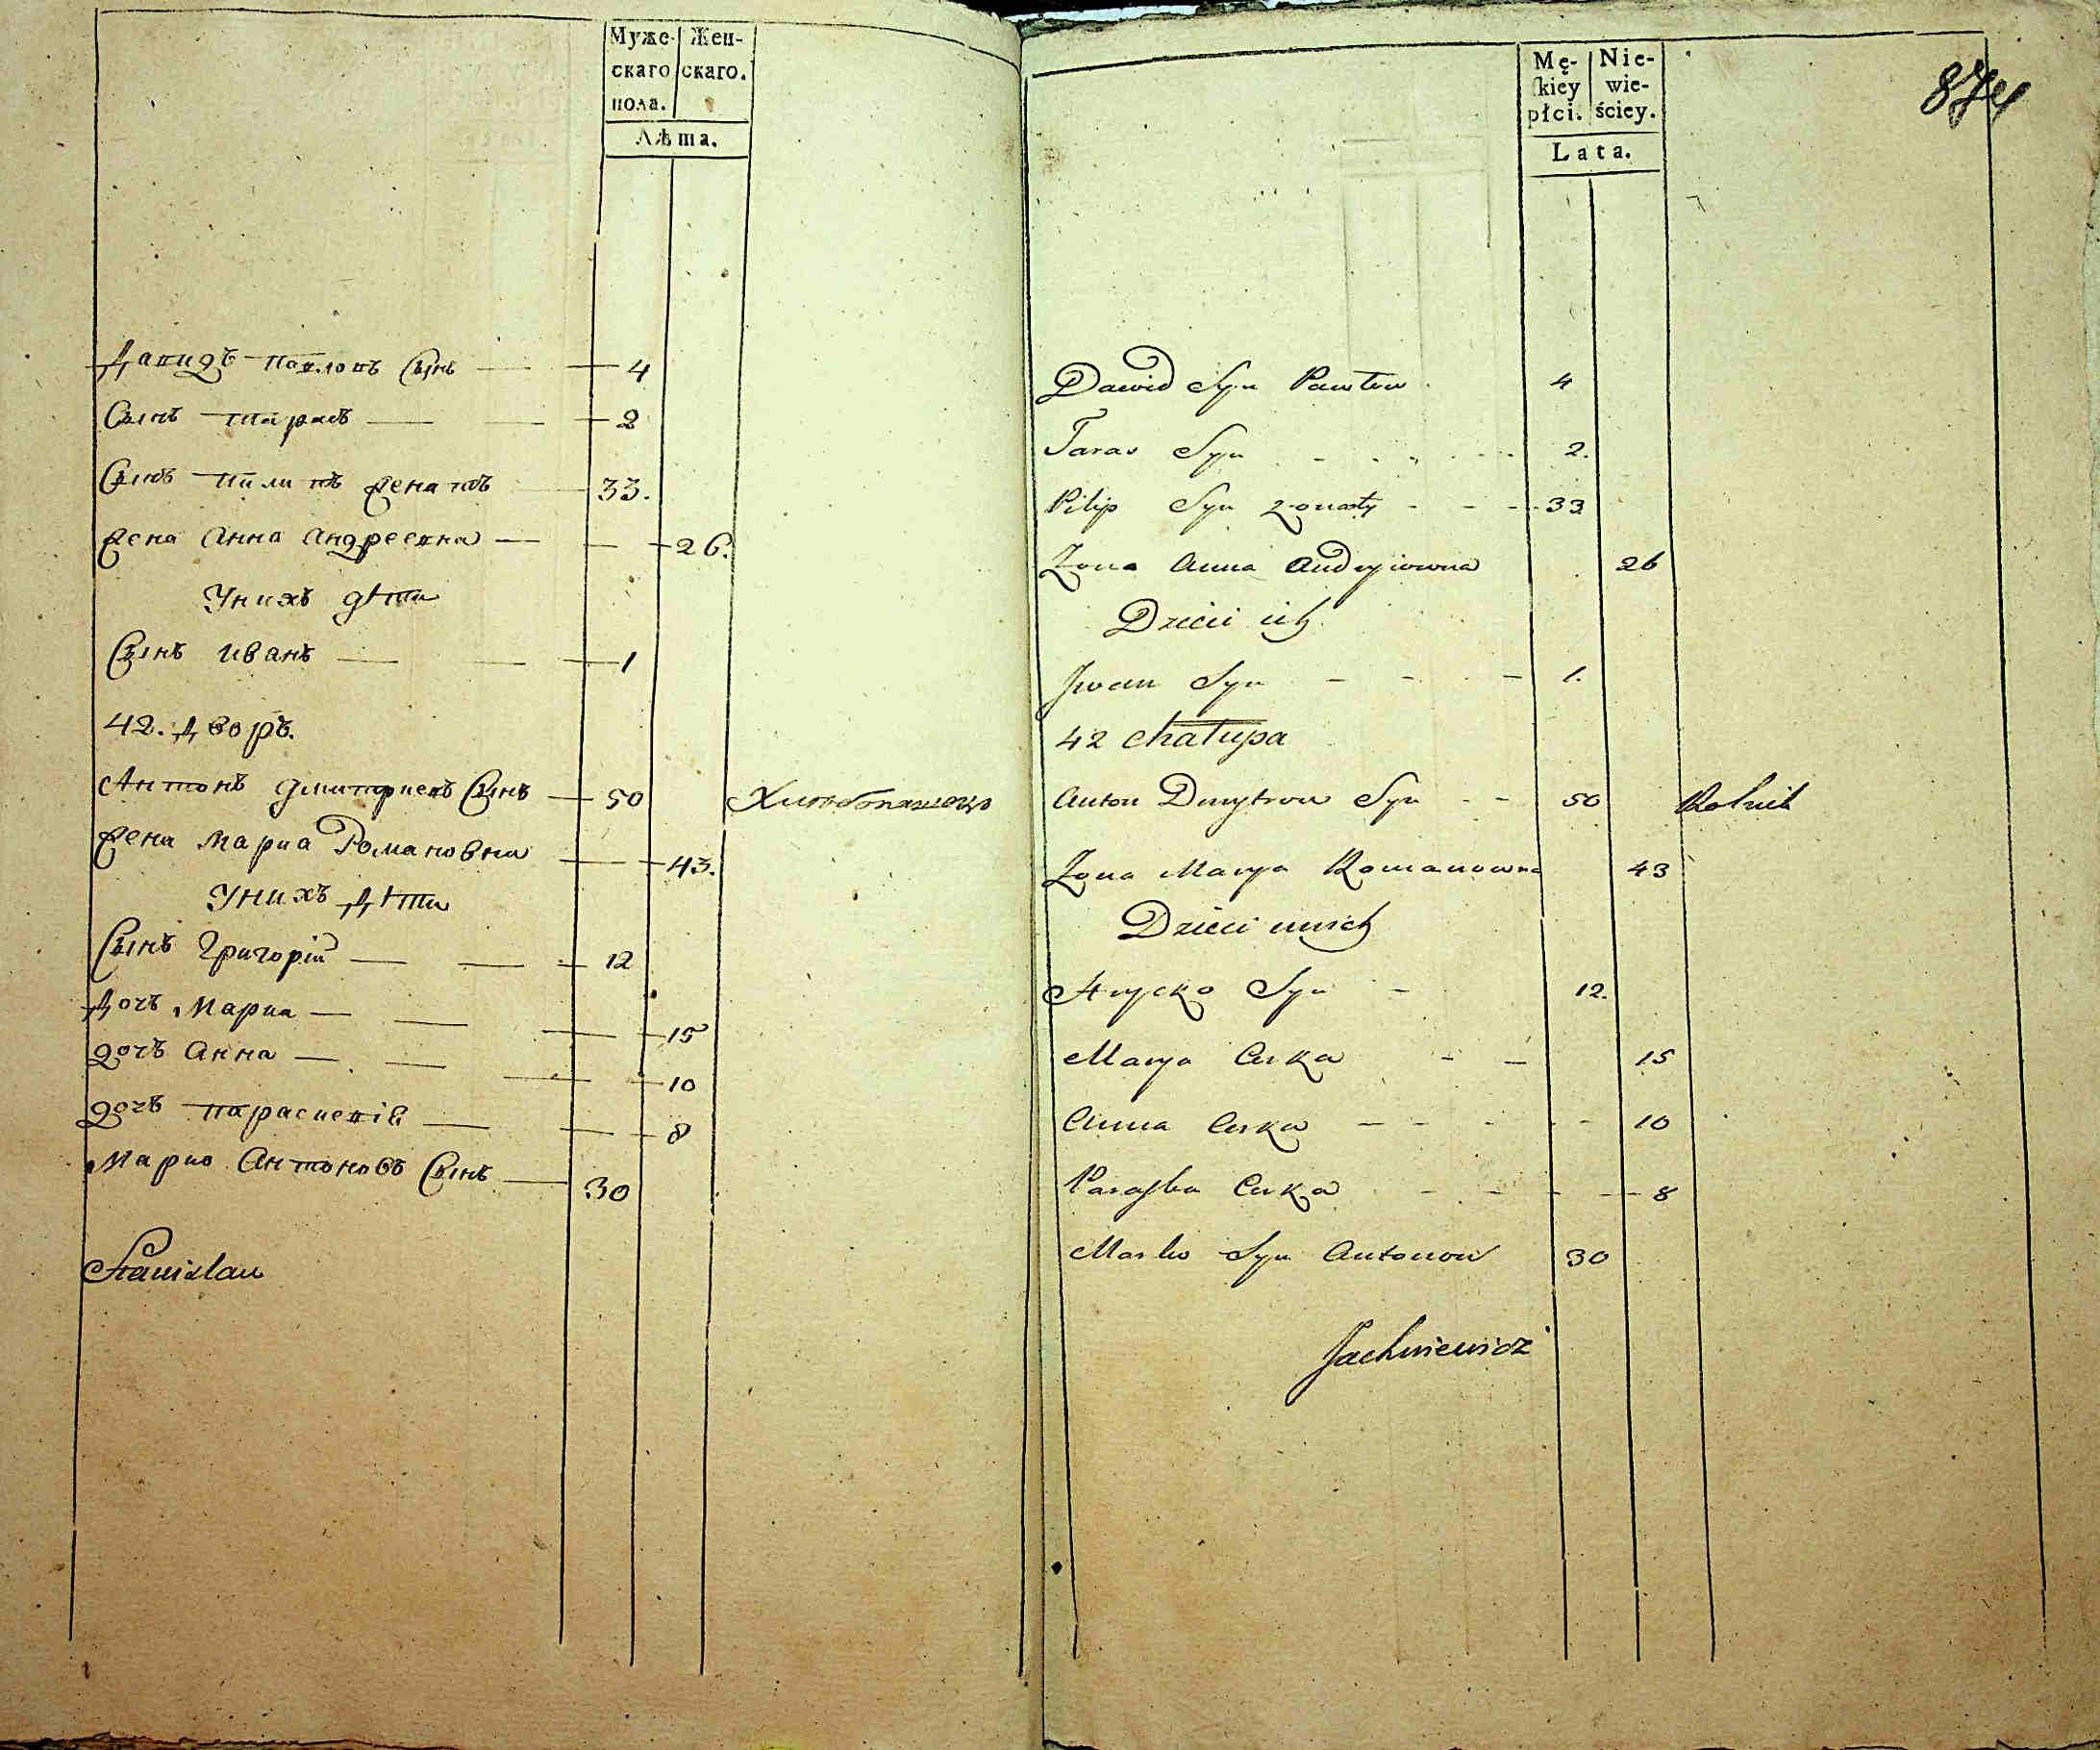 Муже- Жен-
скаго скаго.
пола.
Лѣта.
Давидъ Павловъ Сынъ — 4
Сынъ Тарасъ — 2
Сынъ Пилипъ женатъ 33.
Жена Анна Андреевна — 26.
У нихъ дѣти
Сынъ Иванъ — 1
42. Дворъ.
Антонъ Дмитриевъ Сынъ — 50
Жена Мариа Романовна — 43.
У нихъ Дѣти
Сынъ Григорій — 12
Дочъ Мариа — 15
дочъ Анна — 10
дочъ — 8
Марко Антоновъ Сынъ — 30
Stanisław
Mę- Nie-
skiey wie-
płci. ściey.
Lata.
874
Dawid Syn Pawłow 4
Taras Syn 2.
Pilip Syn żonaty - - - 33
Żona Anna Andryiowna 26
Dzieci ich
Jwan Syn - - - 1.
42 Chałupa
Anton Dmytrow Syn - - 50 Rolnik
Żona Marya Romanowna 43
Dzieci unich
Hrycko Syn - 12.
Marya Curka - - 15
Anna Curka - - - - 10
Paraska Curka - - - - 8
Marko Syn Antonow 30
Jachniewicz